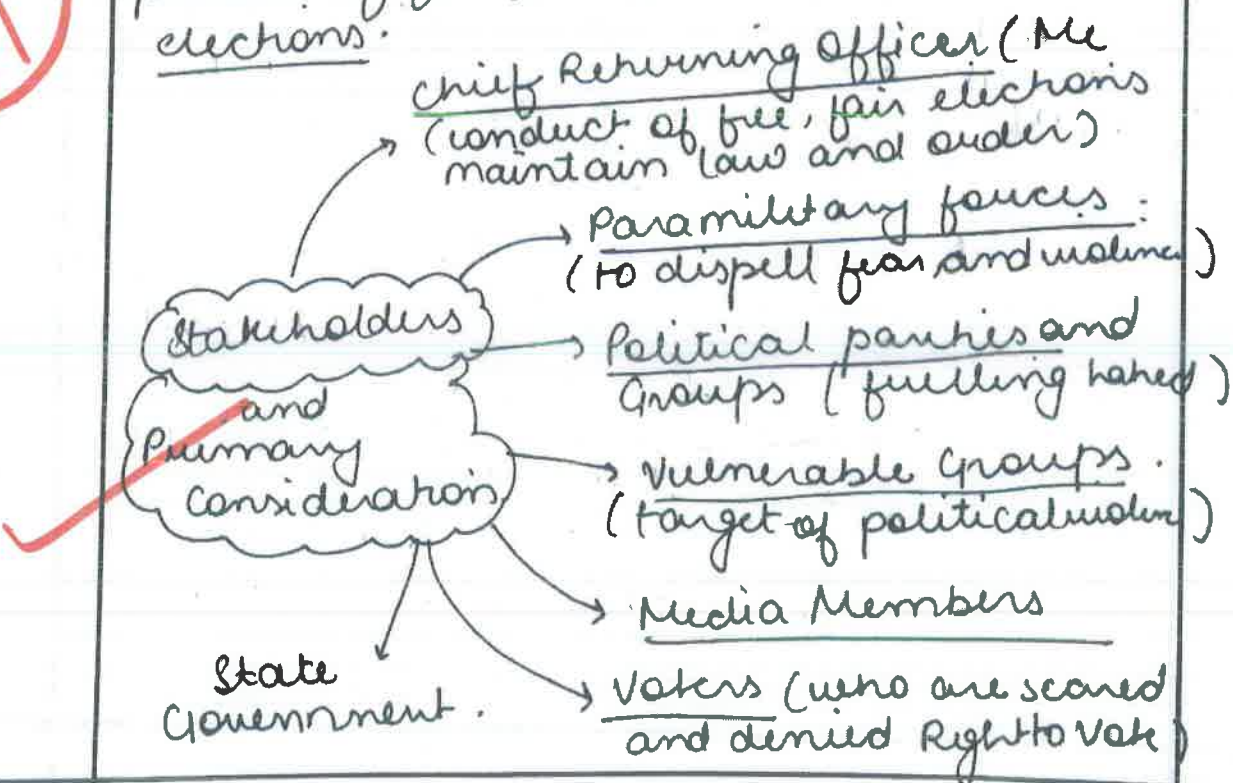 elections.
Chief Returning Officer (Me
(conduct of free, fair elections
maintain law and order)
Paramilitary forces :
(to dispell fear and violence)
Stakeholders
and
Primary
Consideration
Political parties and
Groups (fuelling hatred)
Vulnerable Groups.
(target of political violence)
Media Members
State
Government.
Voters (who are scared
and denied Right to Vote)